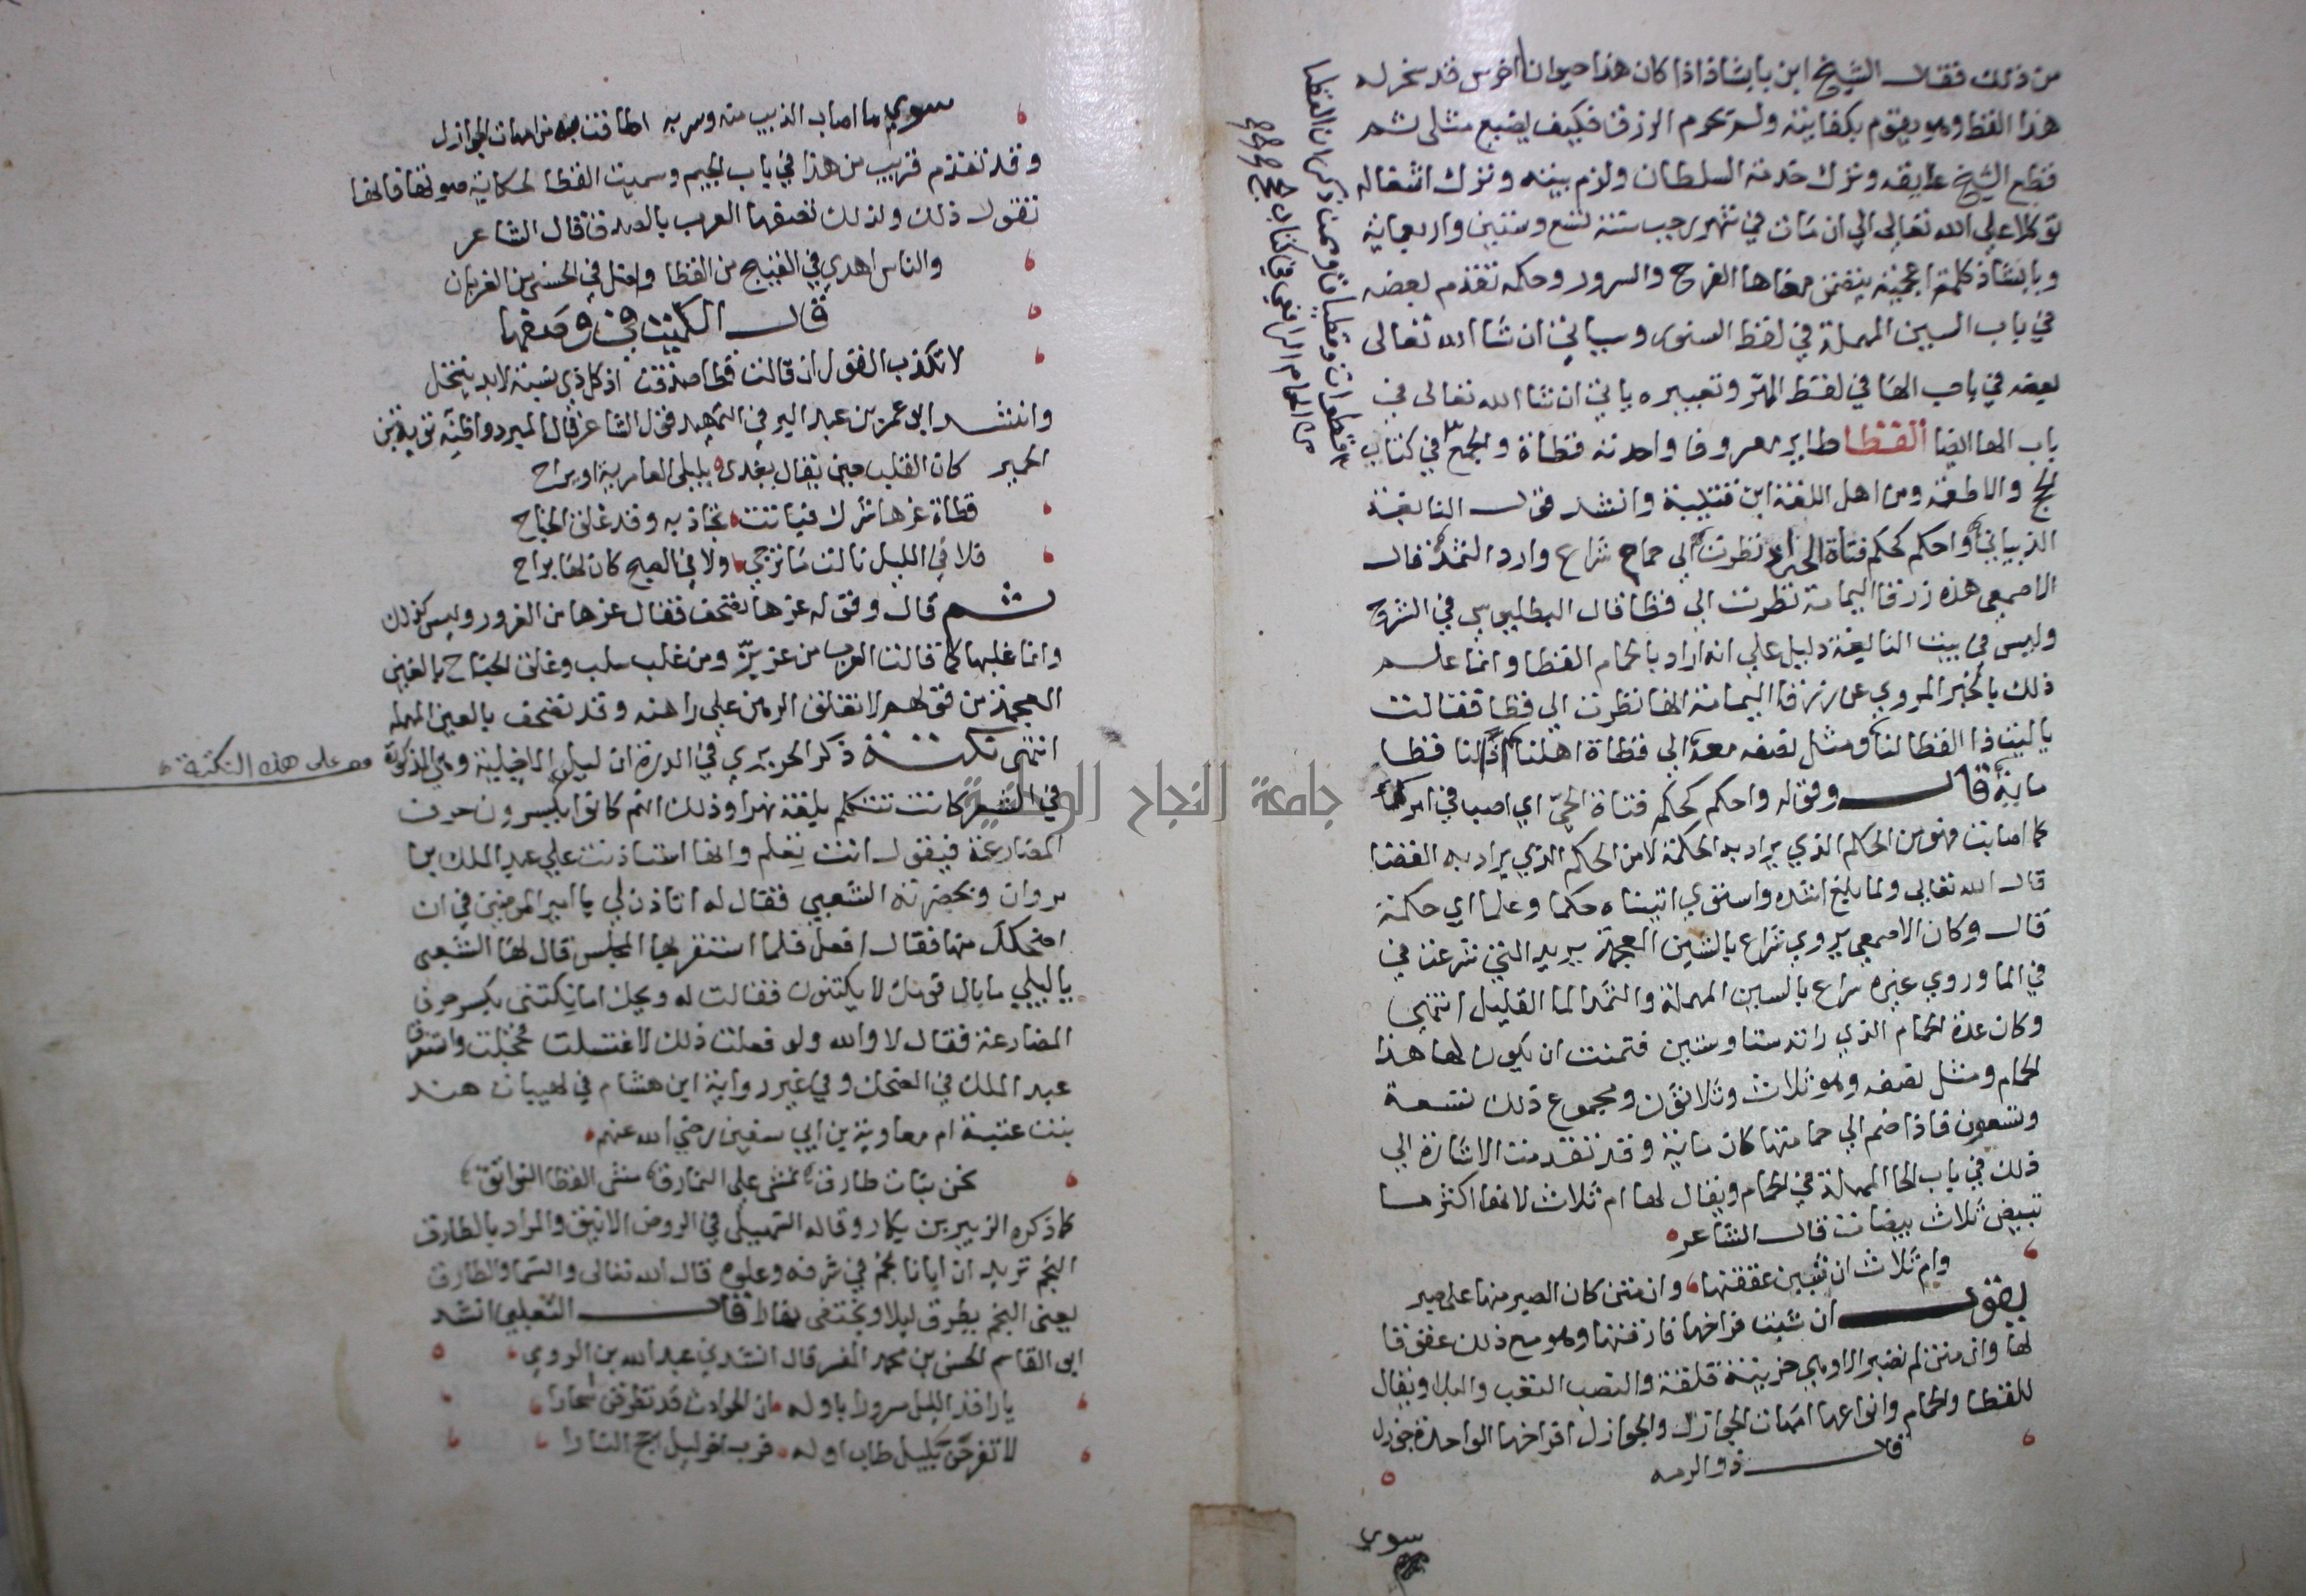 من ذلك فقال الشيخ ابن بابشاذ اذا كان هذا حيوانا اخرس قد سخر له
هذا القط وهو يقوم بكفايته ولم يحرم الرزق فكيف يضيع مثلي ثم
قطع الشيخ علايقه وترك خدمة السلطان ولزم بيته وترك اشغاله
توكلا على الله تعالى الي ان مات في شهر رجب سنة تسع وستين واربعماية
وبابشاذ كلمة اعجمية يتضمن معناها الفرح والسرور وحكمه تقدم بعضه
في باب السين المهملة في لفظ السنور وسياتي ان شا الله تعالى
بعضه في باب الها في لفظ الهر وتعبيره ياتي ان شا الله تعالى في
باب الها ايضا القطا طاير معروف واحدته قطاة والجمع في كتاب
الحج والاطعمة ومن اهل اللغة ابن قتيبة وانشد قول النابغة
الذبياني واحكم كحكم فتاة الحي اذ نظرت الي حمام شراع وارد الثمد قال
الاصمعي هذه زرقا اليمامة نظرت الي قطا قال البطليوسي في الشرح
وليس في بيت النابغة دليل علي انه اراد بالحمام القطا وانما علم
ذلك بالخبر المروي عن زرقا اليمامة انها نظرت الي قطا فقالت
ياليت ذا القطا لنا ومثل نصفه معه الي قطاة اهلنا اذا لنا قطا
ماية قال وقوله واحكم كحكم فتاة الحي اي اصب في امرك
كما اصابت فهو من الحكم الذي يراد به الحكمة لا من الحكم الذي يراد به القضا
قال الله تعالى ولما بلغ اشده واستوي اتيناه حكما وعلما اي حكمة
قال وكان الاصمعي يروي شراع بالشين المعجمة يريد التي شرعت في
في الما وروي غيره سراع بالسين المهملة والثمد الما القليل انتهي
وكان عدة الحمام الذي راته ستا وستين فتمنت ان يكون لها هذا
الحمام ومثل نصفه وهو ثلاث وثلاثون ومجموع ذلك تسعة
وتسعون فاذا ضم الي حمامتها كان ماية وقد تقدمت الاشارة الي
ذلك في باب الحا المهملة في الحمام ويقال لها ام ثلاث لانها اكثر ما
تبيض ثلاث بيضات قال الشاعر
وام ثلاث ان شببن عققنها وان متن كان الصبر منها على صبر
يقول ان شبت فراخها فارقتها وهو مع ذلك عقوقا
لها وان متن لم تصبر الا وهي حزينة قلقة والنصب التعب والبلا ويقال
للقطا والحمام وانواعها امهات الجوازل والجوازل افراخها الواحدة جوزل
قال ذو الرمه
سوي
قطوات وقطيات وممن ذكر ان القطا
من الحمام الرافعي في كتاب الحج
سوي ما اصاب الذيب منه وسربه اطافت به من امهات الجوازل
وقد تقدم قريب من هذا في باب الجيم وسميت القطا لحكاية صوتها فانها
تقول ذلك ولذلك تصفها العرب بالصدق قال الشاعر
والناس اهدي في القبيح من القطا واضل في الحسنى من الغربان
قال الكميت في وصفها
لا تكذب القول ان قالت قطا صدقت اذ كل ذي نسبة لابد ينتحل
وانشد ابو عمر بن عبد البر في التمهيد قول الشاعر قال المبرد واظنه توبة بن
الحمير كان القلب حين يقال يغدى بليلى العامرية او يراح
قطاة غرها شرك فباتت تجاذبه وقد غلق الجناح
فلا في الليل نالت ما ترجي ولا في الصبح كان لها براح
ثم قال وقوله عزها تصحف فقال غرها من الغرور وليس كذلك
وانما غلبها كما قالت العرب من عز بز ومن غلب سلب وغلق الجناح بالغين
المعجمة من قولهم لا تغلق الرهن علي راهنه وقد تصحف بالعين المهمله
انتهى نكتة ذكر الحريري في الدرة ان ليلى الاخيلية وهي المذكورة
في الشعر كانت تتكلم بلغة بهرا وذلك انهم كانوا يكسرون حرف
المضارعة فيقول انت تعلم وانها استاذنت علي عبد الملك بن
مروان وبحضرته الشعبي فقال له اتاذن لي يا امير المومنين في ان
اضحكك منها فقال افعل فلما استقر بها المجلس قال لها الشعبي
ياليلي مابال قومك لا يكتنون فقالت له ويحك اما نكتني بكسر حرف
المضارعة فقال لا والله ولو فعلت ذلك لاغتسلت فخجلت واستغرق
عبد الملك في الضحك وفي غير رواية ابن هشام في ابيات هند
بنت عتبة ام معاوية بن ابي سفين رضي الله عنهم
نحن بنات طارق نمشي علي النمارق مشي القطا النواتق
كما ذكره الزبير بن بكار وقاله السهيلي في الروض الانيق والمراد بالطارق
النجم تريد ان ابانا نجم في شرفه وعلوه قال الله تعالى والسما والطارق
يعني النجم يطرق ليلا ويختفى نهارا قال الثعلبي انشد
ابو القاسم الحسن بن محمد المفسر قال انشدني عبد الله بن الرومي
يا راقد الليل مسرورا باوله ان الحوادث قد تطرقن اسحارا
لا تفرحن بليل طاب اوله فرب اخر ليل اجج النارا
قف على هذه النكتة
جامعة النجاح الوطنية